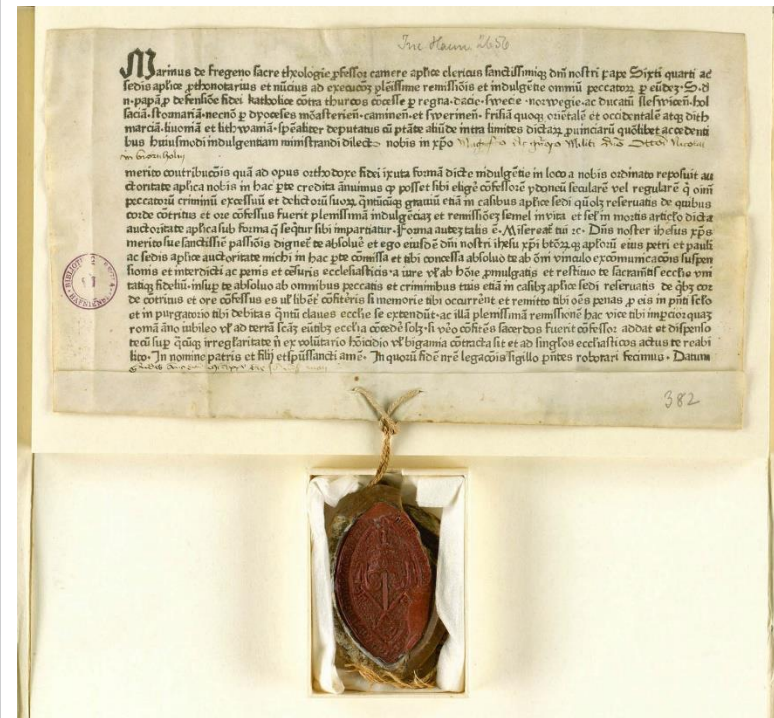 Inc Haun 2656
Marinus de Fregeno sacre theologie ꝓfessor camere apłice clericus sanctissimiqꝫ dñi nostri pape Sixti quarti ac
sedis apłice ꝓthonotarius et nūcius ad execucōꝫ plēissime remissiōis et indulgētie omniū peccatorꝝ ꝑ eūdeꝫ · S · d
n · papā ꝓ defensiōe fidei katholice cōtra thurcos cōcesse ꝑ regna · dacie · swecie · norwegie · ac ducatū sleswicen̄ · hol
saciā · stormariā · necnō ꝑ dyoceses mōasterien̄ · caminen̄ · et swerinen̄ · frisiā quoqꝫ oriētalē et occidentalē atqꝫ dith
marciā · liuoniā et lithwaniā · spēaliter deputatus cū ptāte aliūde intra limites dictarꝝ ꝓuinciarū quōlibet accedenti
bus huiusmodi indulgentiam ministrandi dilecto nobis in xp̄o
merito contribucōis quā ad opus orthodoxe fidei iuxta formā dicte indulgētie in loco a nobis ordinato reposuit au
ctoritate apłica nobis in hac ꝑte credita ānuimus ꝙ posset sibi eligē cōfessorē ydoneū secularē vel regularē q̄ oīm
peccatorū criminū excessuū et delictorū suorꝝ q̄ntūcūqꝫ grauiū etiā in casibus apłice sedi quōlꝫ reseruatis de quibus
corde cōtritus et ore cōfessus fuerit plenissimā indulgēciaꝫ et remissiōeꝫ semel in vita et sel̄ in mortis articło dicta
auctoritate apłica sub forma q̄ seq̄tur sibi impartiatur · Forma auteꝫ talis ē · Misereat᷑ tui ⁊c · Dn̄s noster ihesus xp̄s
merito sue sanctissīe passiōis dignet᷑ te absoluē et ego eiusdē dn̄i nostri ihesu xp̄i btōrꝝqꝫ apłorū eius petri et pauli
ac sedis apłice auctoritate michi in hac ꝑte cōmissa et tibi concessa absoluo te ab ōm̄ vinculo excōmunicacōis suspen
sionis et interdicti ac penis et cēsuris ecclesiasticis · a iure vl̄ ab hōie ꝓmulgatis et restituo te sacramētis ecclie vni
tatiqꝫ fideliū · insuꝑ te absoluo ab omnibus peccatis et criminibus tuis etiā in casibꝫ apłice sedi reseruatis de q̄bꝫ cor
de cōtritus et ore cōfessus es vl̄ libēt᷑ cōfiteris si memorie tibi occurrent et remitto tibi oēs penas ꝓ eis in pn̄ti sclo
et in purgatorio tibi debitas q̄ntū claues ecclie se extendūt · ac illā plenissimā remissionē hac vice tibi imꝑcior quaꝫ
romā āno iubileo vl̄ ad terrā scāꝫ eūtibꝫ ecclia cōcedē solꝫ · si v̄o cōfitēs sacerdos fuerit cōfessor addat et dispenso
tecū suꝑ q̄cūqꝫ irreglaritate n̄ ex volūtario hōicidio vl̄ bigamia cōtracta sit et ad singlos ecclīasticos actus te reabi
lito · In nomine patris et filij et spūssancti amē · In quorū fidē nr̄e legacōis sigillo pn̄tes roborari fecimus · Datum
382